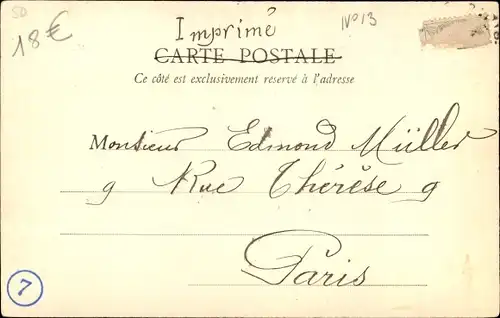 SD
18€
Imprimé
No 13
CARTE POSTALE
Ce côté est exclusivement reservé à l'adresse
Monsieur Edmond Müller
9 Rue Thérèse 9
Paris
7